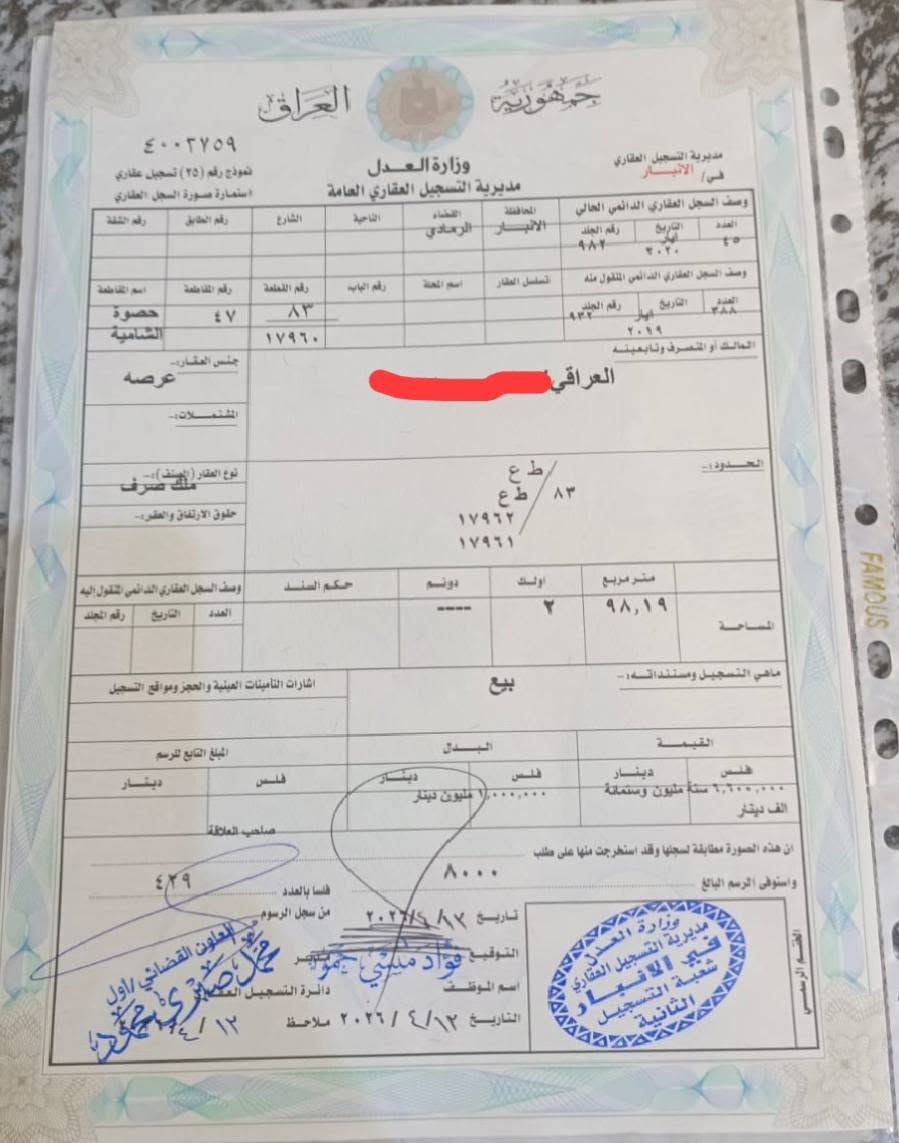 جمهورية العراق
٤٠٠٢٧٥٩
وزارة العدل
مديرية التسجيل العقاري العامة
مديرية التسجيل العقاري
في/ الانبار
نموذج رقم (٢٥) تسجيل عقاري
استمارة صورة السجل العقاري
وصف السجل العقاري الدائمي الحالي
المحافظة
القضاء
الناحية
الشارع
رقم الطابق
رقم الشقة
العدد
التاريخ
رقم الجلد
الانبار
الرمادي
٤٥
ايار
٢٠٢٠
٩٨٢
وصف السجل العقاري الدائمي المنقول منه
تسلسل العقار
اسم المحلة
رقم الباب
رقم القطعة
رقم المقاطعة
اسم المقاطعة
العدد
التاريخ
رقم الجلد
٣٨٨
ايار
٢٠١٩
٩٣٢
٨٣
١٧٩٦٠
٤٧
حصوة
الشامية
المالك أو المتصرف وتابعيته
العراقي
جنس العقار:-
عرصه
المشتملات:-
الحدود:-
ط ع
٨٣ / ط ع
١٧٩٦٢
١٧٩٦١
نوع العقار (الصنف):-
ملك صرف
حقوق الارتفاق والعقر:-
متر مربع
اولك
دونم
حكم السند
وصف السجل العقاري الدائمي المنقول إليه
المساحة
٩٨,١٩
٢
----
العدد
التاريخ
رقم المجلد
ماهي التسجيل ومستنداته:-
بيع
اشارات التأمينات العينية والحجز ومواقع التسجيل
القيمة
البدال
المبلغ التابع للرسم
فلس
دينار
فلس
دينار
فلس
دينار
٦,٦٠٠,٠٠٠ ستة مليون وستمائة
الف دينار
مليون دينار
صاحب العلاقة
ان هذه الصورة مطابقة لسجلها وقد استخرجت منها على طلب
واستوفى الرسم البالغ
٨٠٠٠
فلسا بالعدد
٤٢٩
من سجل الرسوم
تاريخ ٢٠٢٦/٤/١٣
التوقيع
اسم الموظف
التاريخ ٢٠٢٦/٤/١٣
ملاحظ
دائرة التسجيل
المعاون القضائي/اول
الختم الرسمي
وزارة العدل
مديرية التسجيل العقاري
في الانبار
شعبة التسجيل
الثانية
FAMOUS